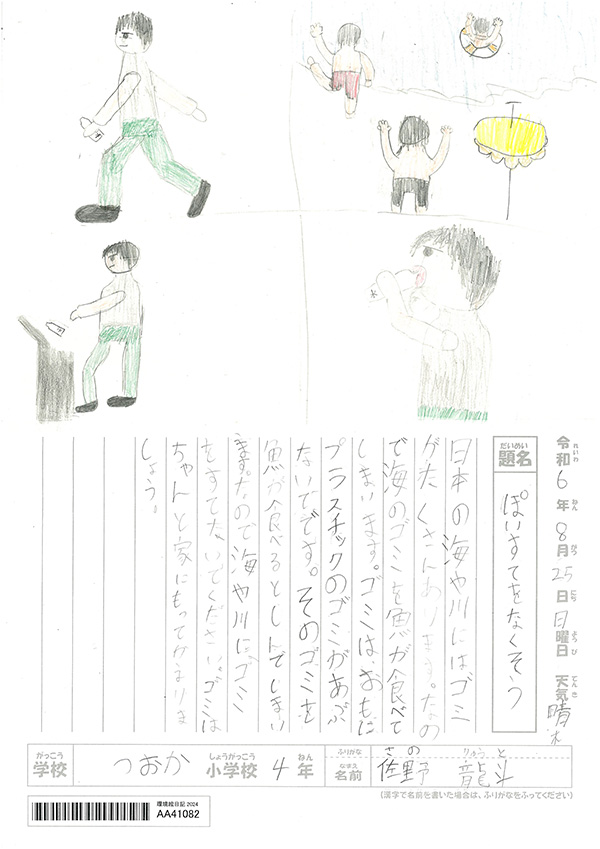 令和6年8月25日日曜日 天気晴れ
れいわ ねん がつ にち ようび てんき
だいめい
題名 ぽいすてをなくそう
日本の海や川にはゴミ
がたくさんあります。なの
で海のゴミを魚が食べて
しまいます。ゴミは、おもに
プラスチックのゴミがあぶ
ないでです。そのゴミを
魚が食べるとしんでしまい
ます。なので海や川にゴミ
をすてないでください。ゴミは
ちゃんと家にもってかえりま
しょう。
がっこう しょうがっこう ねん
学校 つおか 小学校 4年
ふりがな さの りゅうと
なまえ
名前 佐野 龍斗
(漢字で名前を書いた場合は、ふりがなをふってください)
環境絵日記 2024
AA41082